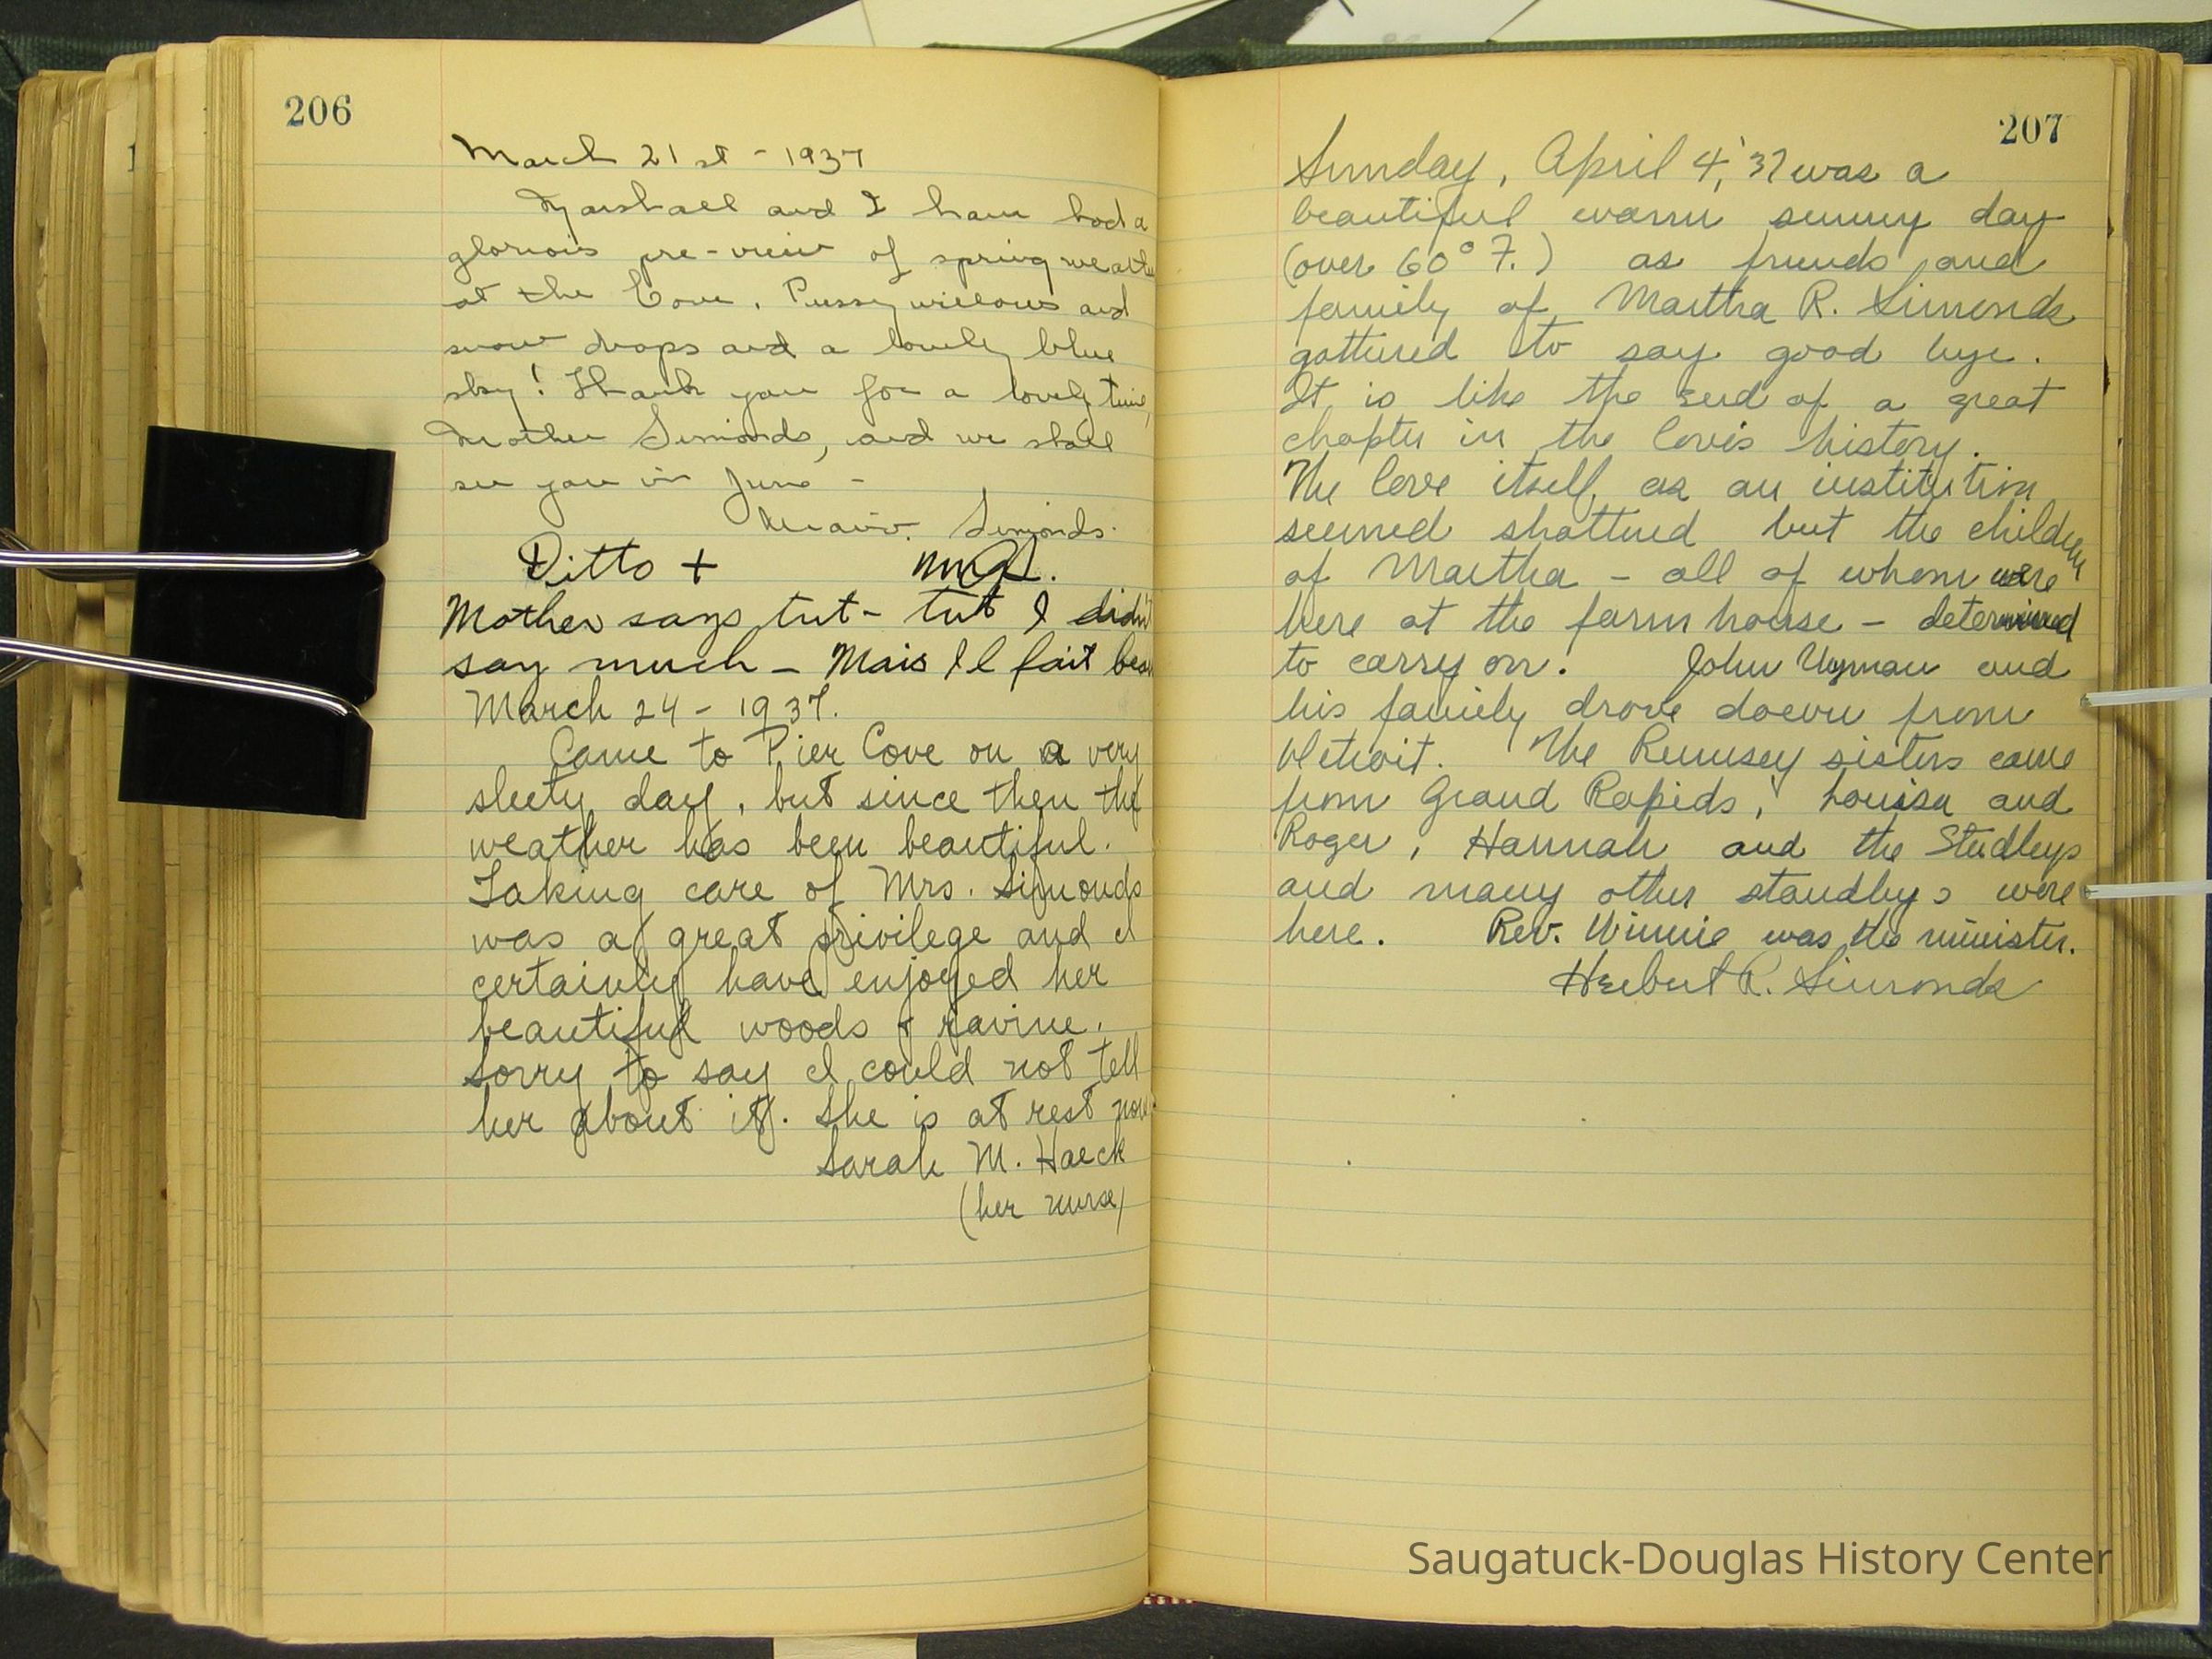 206
March 21st - 1937
Marshall and I have had a
glorious pre-view of spring weather
at the Cove. Pussy willows and
snow drops and a lovely blue
sky! Thank you for a lovely time,
Mother Simonds, and we shall
see you in June -
Simonds.
Ditto +
Mother says tut- tut I didn't
say much - Mais Il fait beau
March 24 - 1937.
Came to Pier Cove on a very
sleety day, but since then the
weather has been beautiful.
Taking care of Mrs. Simonds
was a great privilege and I
certainly have enjoyed her
beautiful woods & ravine.
Sorry to say I could not tell
her about it. She is at rest now.
Sarah M. Haeck
(her nurse)
207
Sunday, April 4, '37 was a
beautiful warm sunny day
(over 60° F.) as friends and
family of Martha R. Simonds
gathered to say good bye.
It is like the end of a great
chapter in the Cove's history.
The Cove itself, as an institution
seemed shattered but the children
of Martha - all of whom were
here at the farm house - determined
to carry on. John Wyman and
his family drove down from
Detroit. The Rumsey sisters came
from Grand Rapids, Louisa and
Roger, Hannah and the Studleys
and many other standbys were
here. Rev. Winnie was the minister.
Herbert R. Simonds
Saugatuck-Douglas History Center